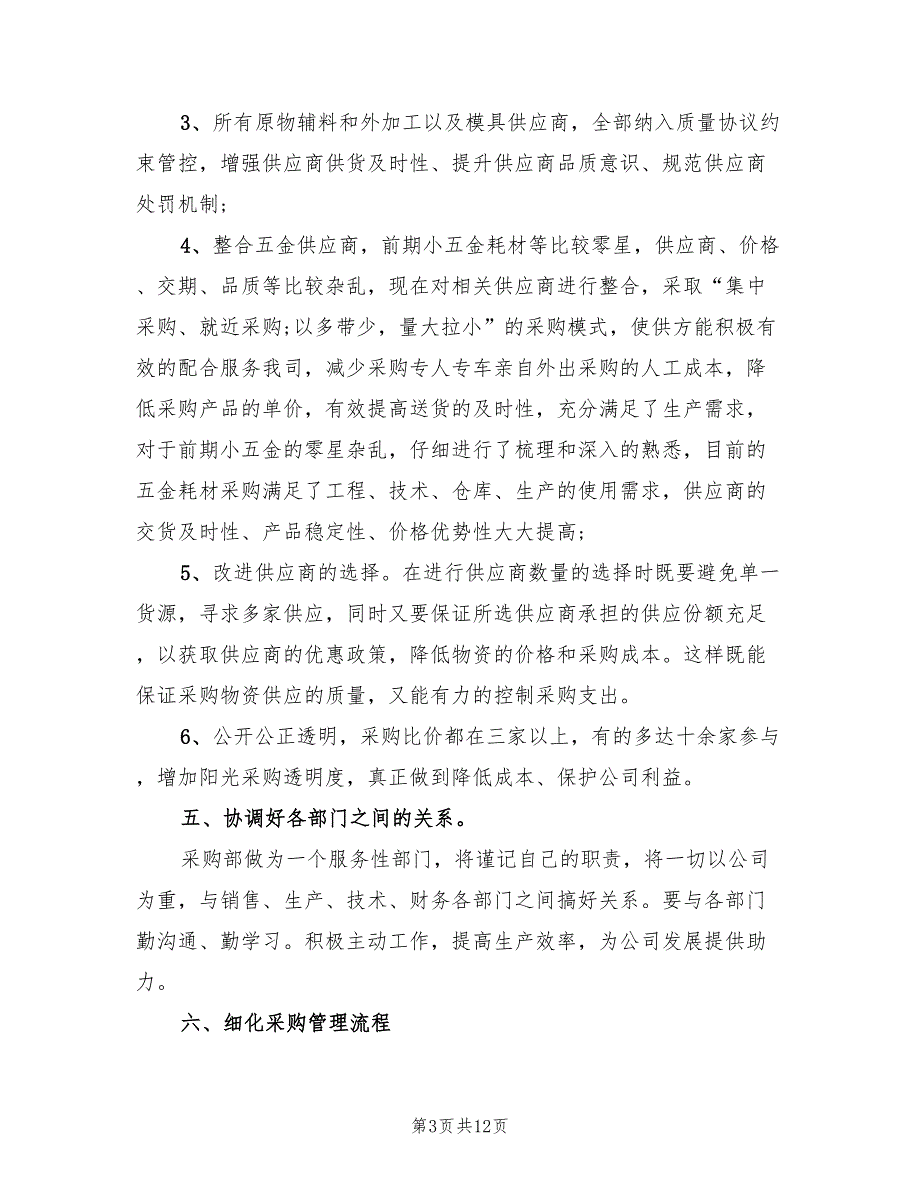 3、所有原物辅料和外加工以及模具供应商，全部纳入质量协议约
束管控，增强供应商供货及时性、提升供应商品质意识、规范供应商
处罚机制;
4、整合五金供应商，前期小五金耗材等比较零星，供应商、价格
、交期、品质等比较杂乱，现在对相关供应商进行整合，采取“集中
采购、就近采购;以多带少，量大拉小”的采购模式，使供方能积极有
效的配合服务我司，减少采购专人专车亲自外出采购的人工成本，降
低采购产品的单价，有效提高送货的及时性，充分满足了生产需求，
对于前期小五金的零星杂乱，仔细进行了梳理和深入的熟悉，目前的
五金耗材采购满足了工程、技术、仓库、生产的使用需求，供应商的
交货及时性、产品稳定性、价格优势性大大提高;
5、改进供应商的选择。在进行供应商数量的选择时既要避免单一
货源，寻求多家供应，同时又要保证所选供应商承担的供应份额充足
，以获取供应商的优惠政策，降低物资的价格和采购成本。这样既能
保证采购物资供应的质量，又能有力的控制采购支出。
6、公开公正透明，采购比价都在三家以上，有的多达十余家参与
，增加阳光采购透明度，真正做到降低成本、保护公司利益。
五、协调好各部门之间的关系。
采购部做为一个服务性部门，将谨记自己的职责，将一切以公司
为重，与销售、生产、技术、财务各部门之间搞好关系。要与各部门
勤沟通、勤学习。积极主动工作，提高生产效率，为公司发展提供助
力。
六、细化采购管理流程
第3页共12页